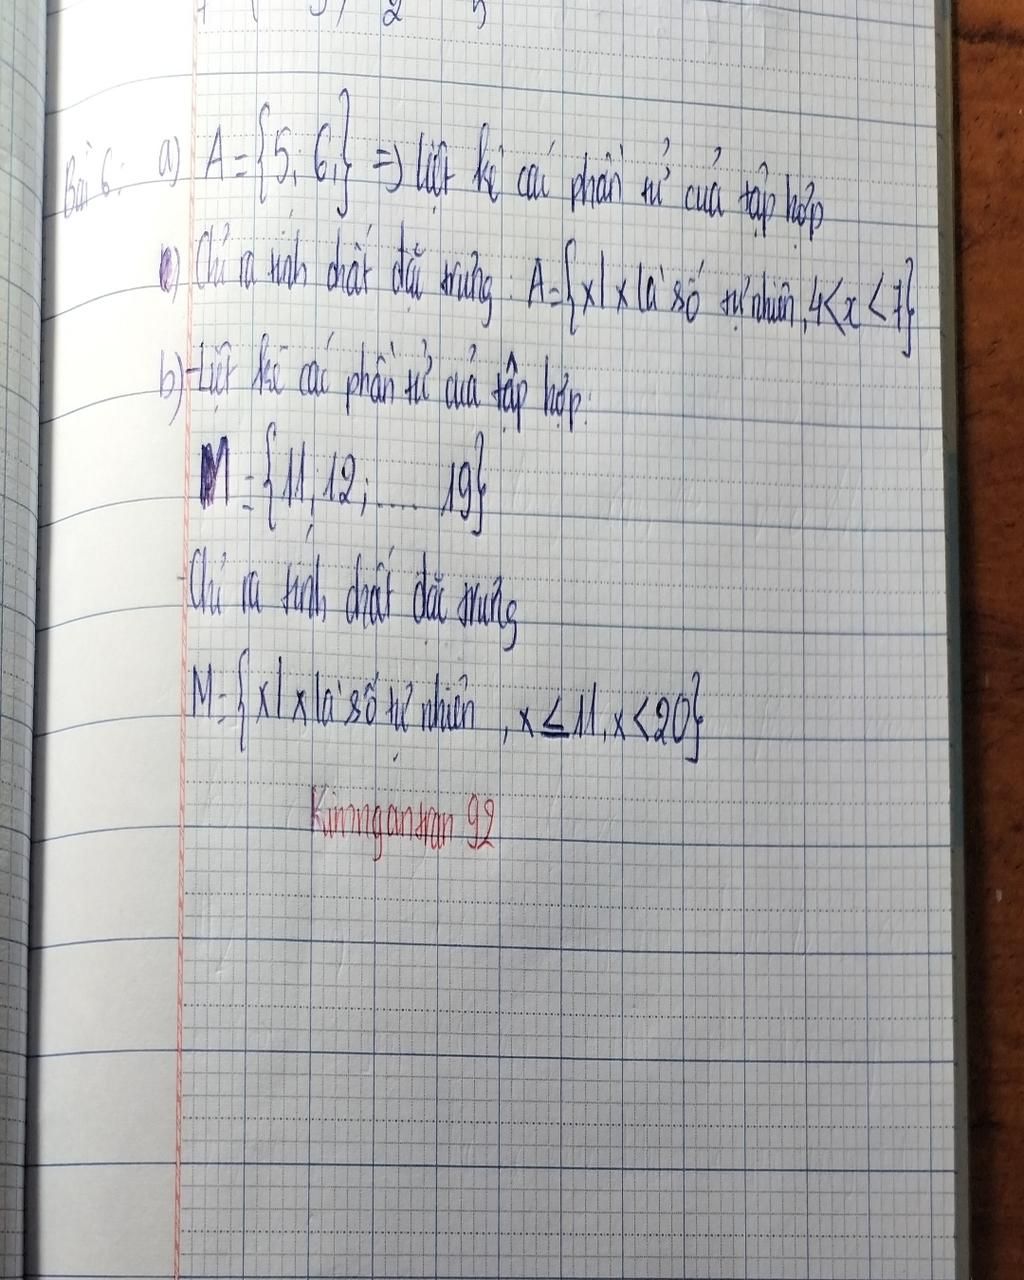 Bài 6: a) A = {5; 6;} => Liệt kê các phần tử của tập hợp
Chỉ ra tính chất đặc trưng: A = {x | x là số tự nhiên, 4 < x < 7}
b) - Liệt kê các phần tử của tập hợp:
M = {11; 12; ..... 19}
- Chỉ ra tính chất đặc trưng
M = {x | x là số tự nhiên, x ≤ 11, x < 20}
Kimngantran 92